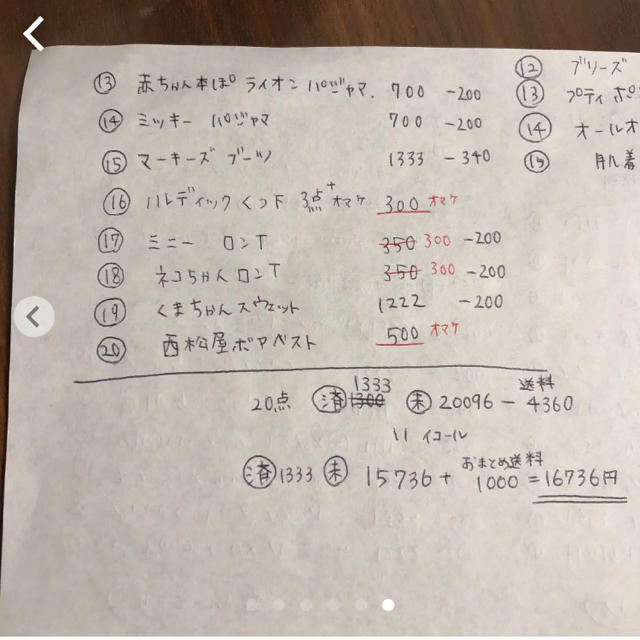 ⑬ 赤ちゃん本ぽ ライオン パジャマ. 700 -200
⑭ ミッキー パジャマ 700 -200
⑮ マーキーズ ブーツ 1333 -340
⑯ ハレディック くつ下 3点+オマケ 300 オマケ
⑰ ミニー ロンT 350 300 -200
⑱ ネコちゃん ロンT 350 300 -200
⑲ くまちゃん スウェット 1222 -200
⑳ 西松屋ボアベスト 500 オマケ
⑫ ブリーズ
⑬ プティ ポ
⑭ オールオ
⑮ 肌着
1333 送料
20点 済 1300 未 20096 - 4360
イコール
おまとめ送料
済 1333 未 15736 + 1000 = 16736円